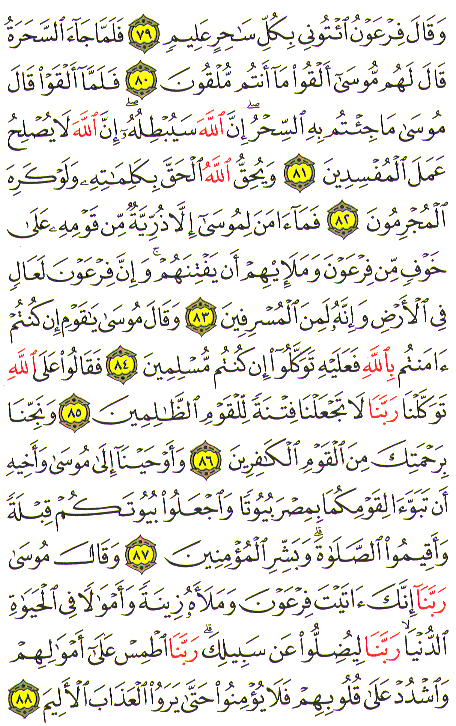 وَقَالَ فِرْعَوْنُ ٱئْتُونِى بِكُلِّ سَـٰحِرٍ عَلِيمٍ ٧٩ فَلَمَّا جَآءَ ٱلسَّحَرَةُ
قَالَ لَهُم مُّوسَىٰٓ أَلْقُوا۟ مَآ أَنتُم مُّلْقُونَ ٨٠ فَلَمَّآ أَلْقَوْا۟ قَالَ
مُوسَىٰ مَا جِئْتُم بِهِ ٱلسِّحْرُ ۖ إِنَّ ٱللَّهَ سَيُبْطِلُهُۥٓ ۖ إِنَّ ٱللَّهَ لَا يُصْلِحُ
عَمَلَ ٱلْمُفْسِدِينَ ٨١ وَيُحِقُّ ٱللَّهُ ٱلْحَقَّ بِكَلِمَـٰتِهِۦ وَلَوْ كَرِهَ
ٱلْمُجْرِمُونَ ٨٢ فَمَآ ءَامَنَ لِمُوسَىٰٓ إِلَّا ذُرِّيَّةٌ مِّن قَوْمِهِۦ عَلَىٰ
خَوْفٍ مِّن فِرْعَوْنَ وَمَلَإِي۟هِمْ أَن يَفْتِنَهُمْ ۚ وَإِنَّ فِرْعَوْنَ لَعَالٍ
فِى ٱلْأَرْضِ وَإِنَّهُۥ لَمِنَ ٱلْمُسْرِفِينَ ٨٣ وَقَالَ مُوسَىٰ يَـٰقَوْمِ إِن كُنتُمْ
ءَامَنتُم بِٱللَّهِ فَعَلَيْهِ تَوَكَّلُوٓا۟ إِن كُنتُم مُّسْلِمِينَ ٨٤ فَقَالُوا۟ عَلَى ٱللَّهِ
تَوَكَّلْنَا رَبَّنَا لَا تَجْعَلْنَا فِتْنَةً لِّلْقَوْمِ ٱلظَّـٰلِمِينَ ٨٥ وَنَجِّنَا
بِرَحْمَتِكَ مِنَ ٱلْقَوْمِ ٱلْكَـٰفِرِينَ ٨٦ وَأَوْحَيْنَآ إِلَىٰ مُوسَىٰ وَأَخِيهِ
أَن تَبَوَّءَا لِقَوْمِكُمَا بِمِصْرَ بُيُوتًا وَٱجْعَلُوا۟ بُيُوتَكُمْ قِبْلَةً
وَأَقِيمُوا۟ ٱلصَّلَوٰةَ ۗ وَبَشِّرِ ٱلْمُؤْمِنِينَ ٨٧ وَقَالَ مُوسَىٰ
رَبَّنَآ إِنَّكَ ءَاتَيْتَ فِرْعَوْنَ وَمَلَأَهُۥ زِينَةً وَأَمْوَٰلًا فِى ٱلْحَيَوٰةِ
ٱلدُّنْيَا رَبَّنَا لِيُضِلُّوا۟ عَن سَبِيلِكَ ۖ رَبَّنَا ٱطْمِسْ عَلَىٰٓ أَمْوَٰلِهِمْ
وَٱشْدُدْ عَلَىٰ قُلُوبِهِمْ فَلَا يُؤْمِنُوا۟ حَتَّىٰ يَرَوُا۟ ٱلْعَذَابَ ٱلْأَلِيمَ ٨٨